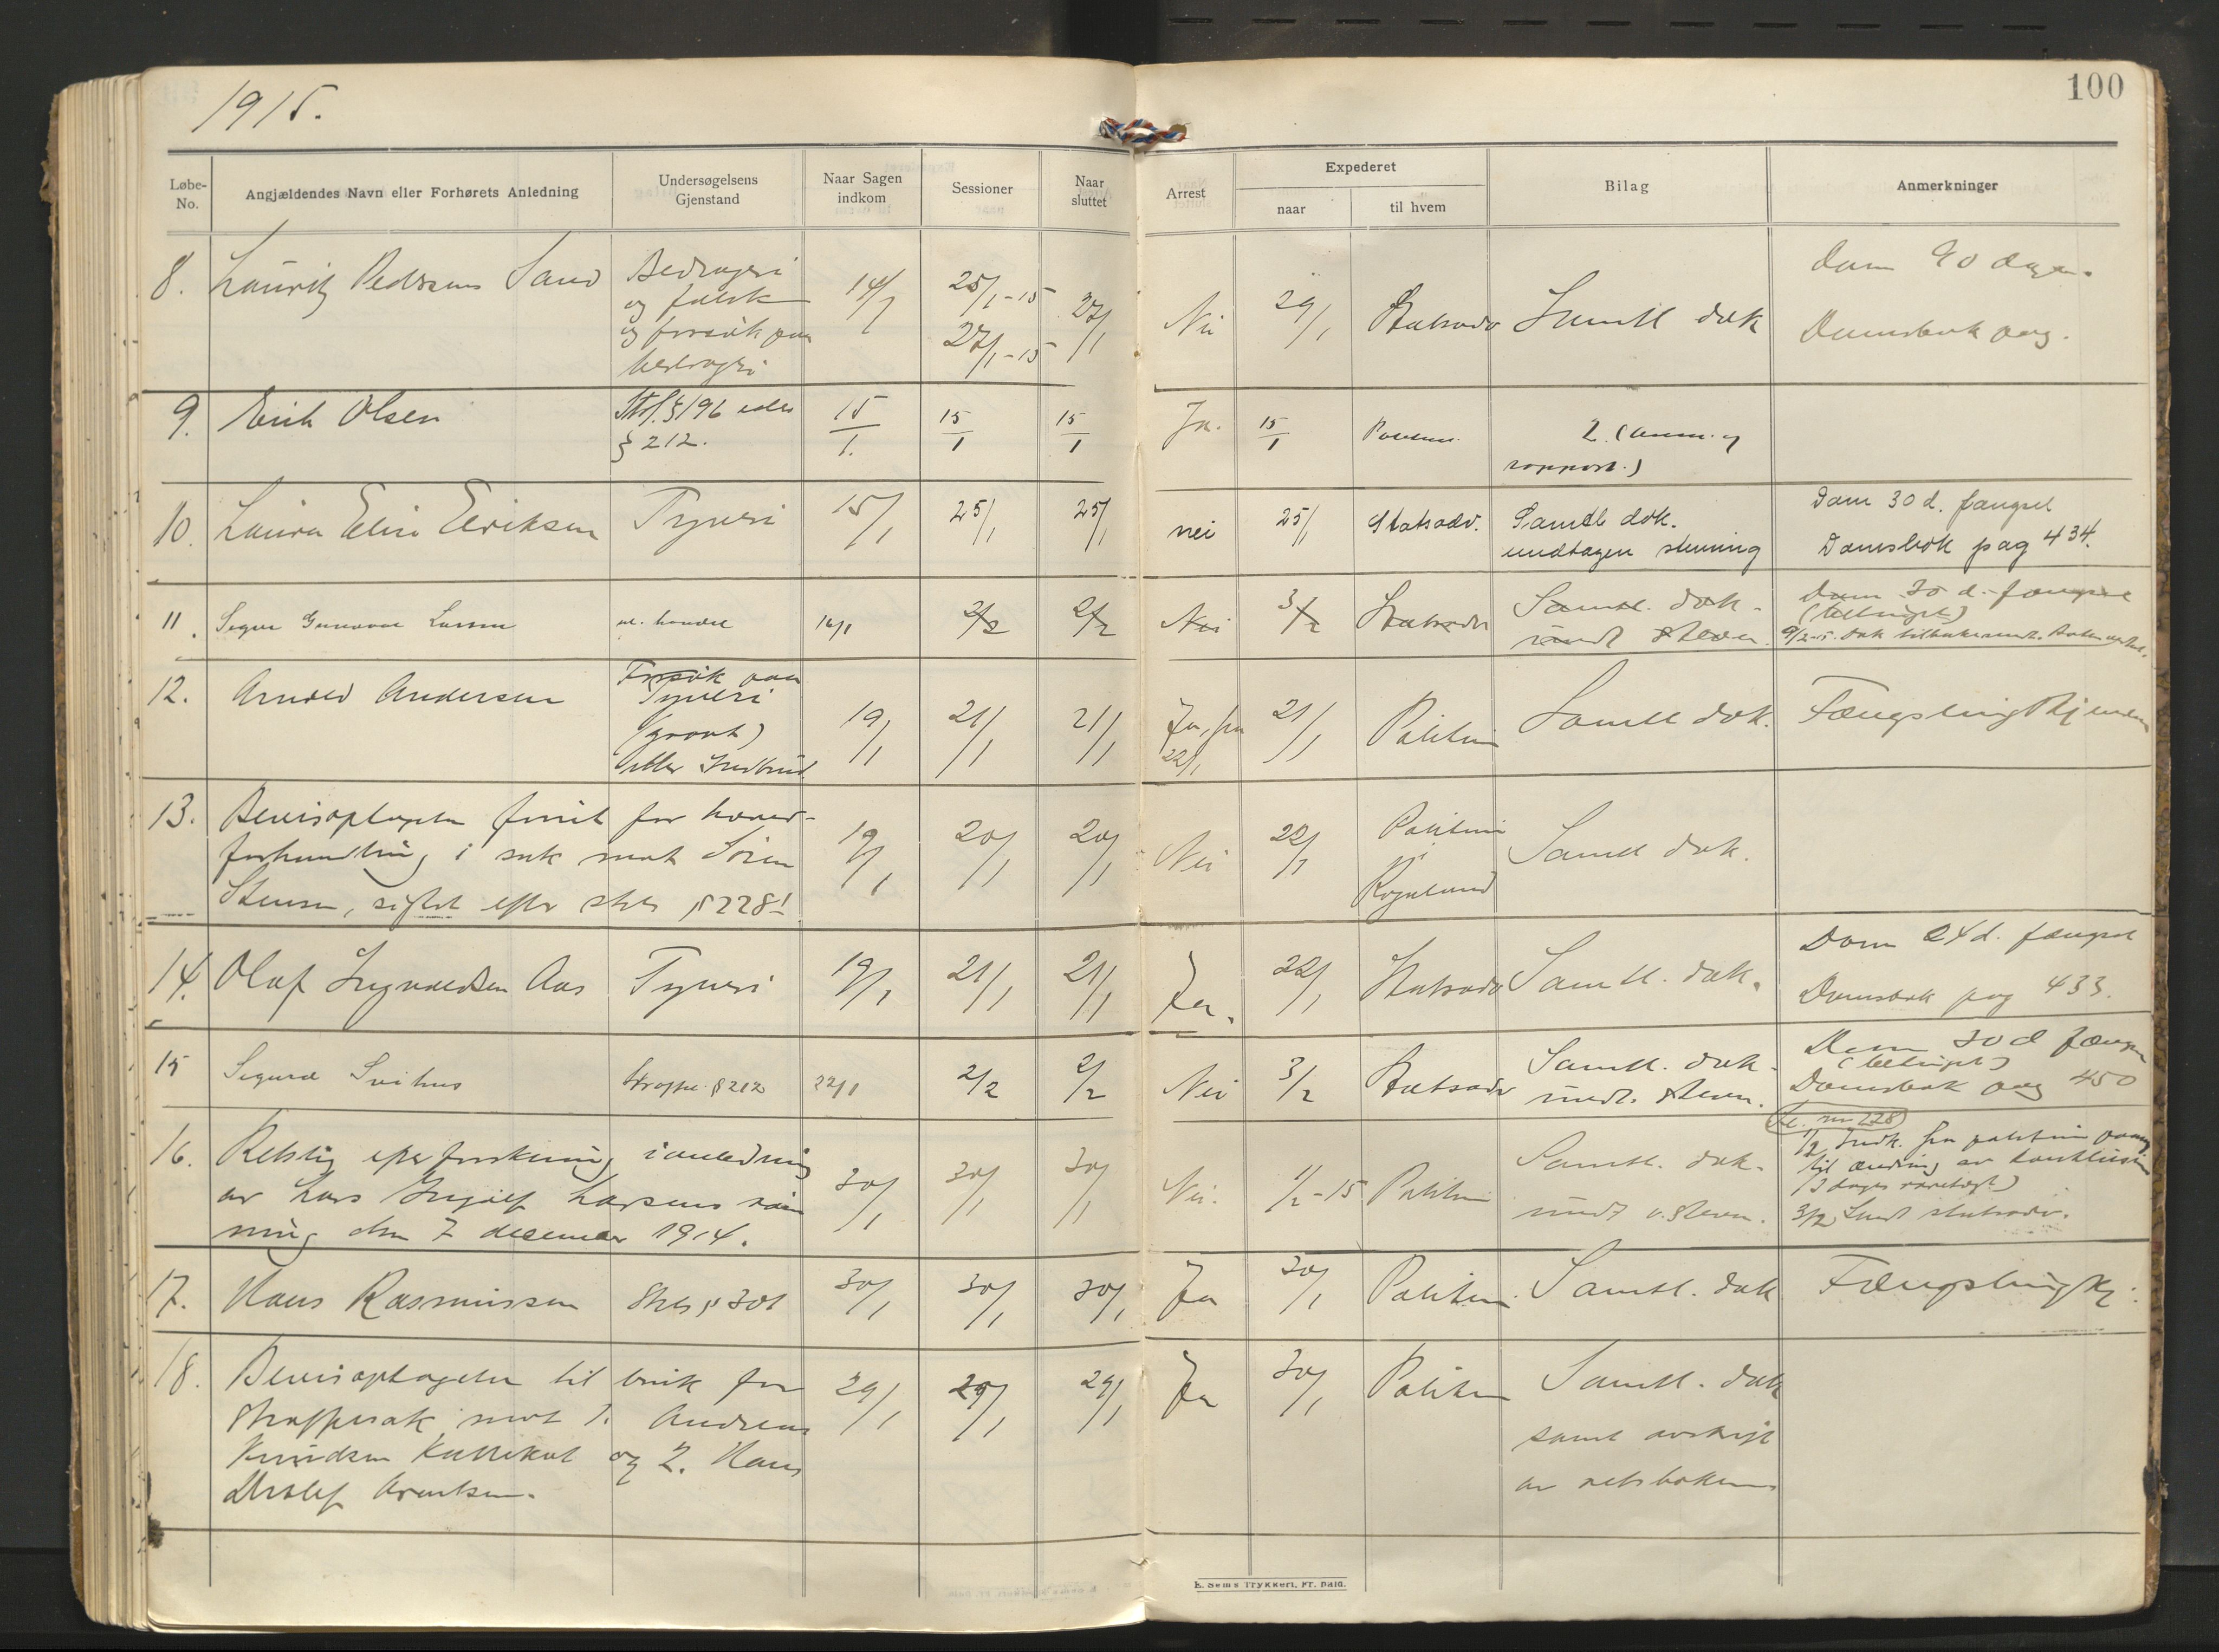 1915.
100
Løbe-
No.
Angjældendes Navn eller Forhørets Anledning
Undersøgelsens
Gjenstand
Naar Sagen
indkom
Sessioner
Naar
sluttet
Arrest
Expederet
naar
til hvem
Bilag
Anmerkninger
8. Lauritz Pedersen Sand
Bedrageri
og falsk
og forsøk paa
bedrageri
14/1
25/1-15
27/1-15
27/1
Nei
29/1
Statsadv
Samtl dok
Dom 90 dage.
Domsbok pag.
9. Erik Olsen
Strl. § 196 eller
§ 212.
15/1.
15/1
15/1
Ja.
15/1
Politim.
2. (anm. og
rapport.)
10. Laura Elise Eriksen
Tyveri
15/1
25/1
25/1
nei
25/1
Statsadv.
Samtl dok.
undtagen stevning
Dom 30 d. fængsel
Domsbok pag 434.
11. Larsen
ul. handel
16/1
2/2
2/2
Nei
3/2
Statsadv
Samtl. dok.
undt steven.
Dom 30 d. fængsel
(betinget)
9/2-15. Dok tilbakesendt.
12. Arnold Andersen
Forsøk paa
Tyveri
(grovt)
eller Indbrud
19/1
21/1
21/1
Ja, fra
22/1
21/1
Politim
Samtl dok.
Fængslingskjendelse
13. Bevisoptagelse forut for hoved-
forhandling i sak mot Sören
Stensen, sigtet efter strl §228 1
19/1
20/1
20/1
Nei
22/1
Politim
i
Rogaland
Samtl dok.
14. Olaf Ingvaldsen Aas
Tyveri
19/1
21/1
21/1
Ja.
22/1
Statsadv
Samtl. dok.
Dom 24 d. fængsel
Domsbok pag 433.
15 Sigurd Svihus
Straffel. § 212
22/1
2/2
2/2
Nei
3/2
Statsadv
Samtl. dok.
undt. steven.
Dom 30 d fængsel
(betinget)
Domsbok pag 450
16. Retslig efterforskning i anledning
av Lars Ingolf Larsens röm-
ning den 7 december 1914.
30/1
30/1
30/1
Nei.
1/2-15
Politim
Samtl. dok.
undt v. steven.
1/2 Indk. fra politim paany
til ændring av konklusion
(3 dages varetægt)
3/2 Sendt statsadv.
17. Hans Rasmussen
Strl § 301
30/1
30/1
30/1
Ja
30/1
Politim.
Samtl. dok
Fængslingskj.
18. Bevisoptagelse til bruk for
straffesak mot 1. Andreas
Knudsen og 2. Hans
Detlef Arentsen.
29/1
29/1
29/1
Ja
30/1
Politim
Samtl. dok
samt avskrift
av retsboken
E. Sems Trykkeri, Fr. hald.